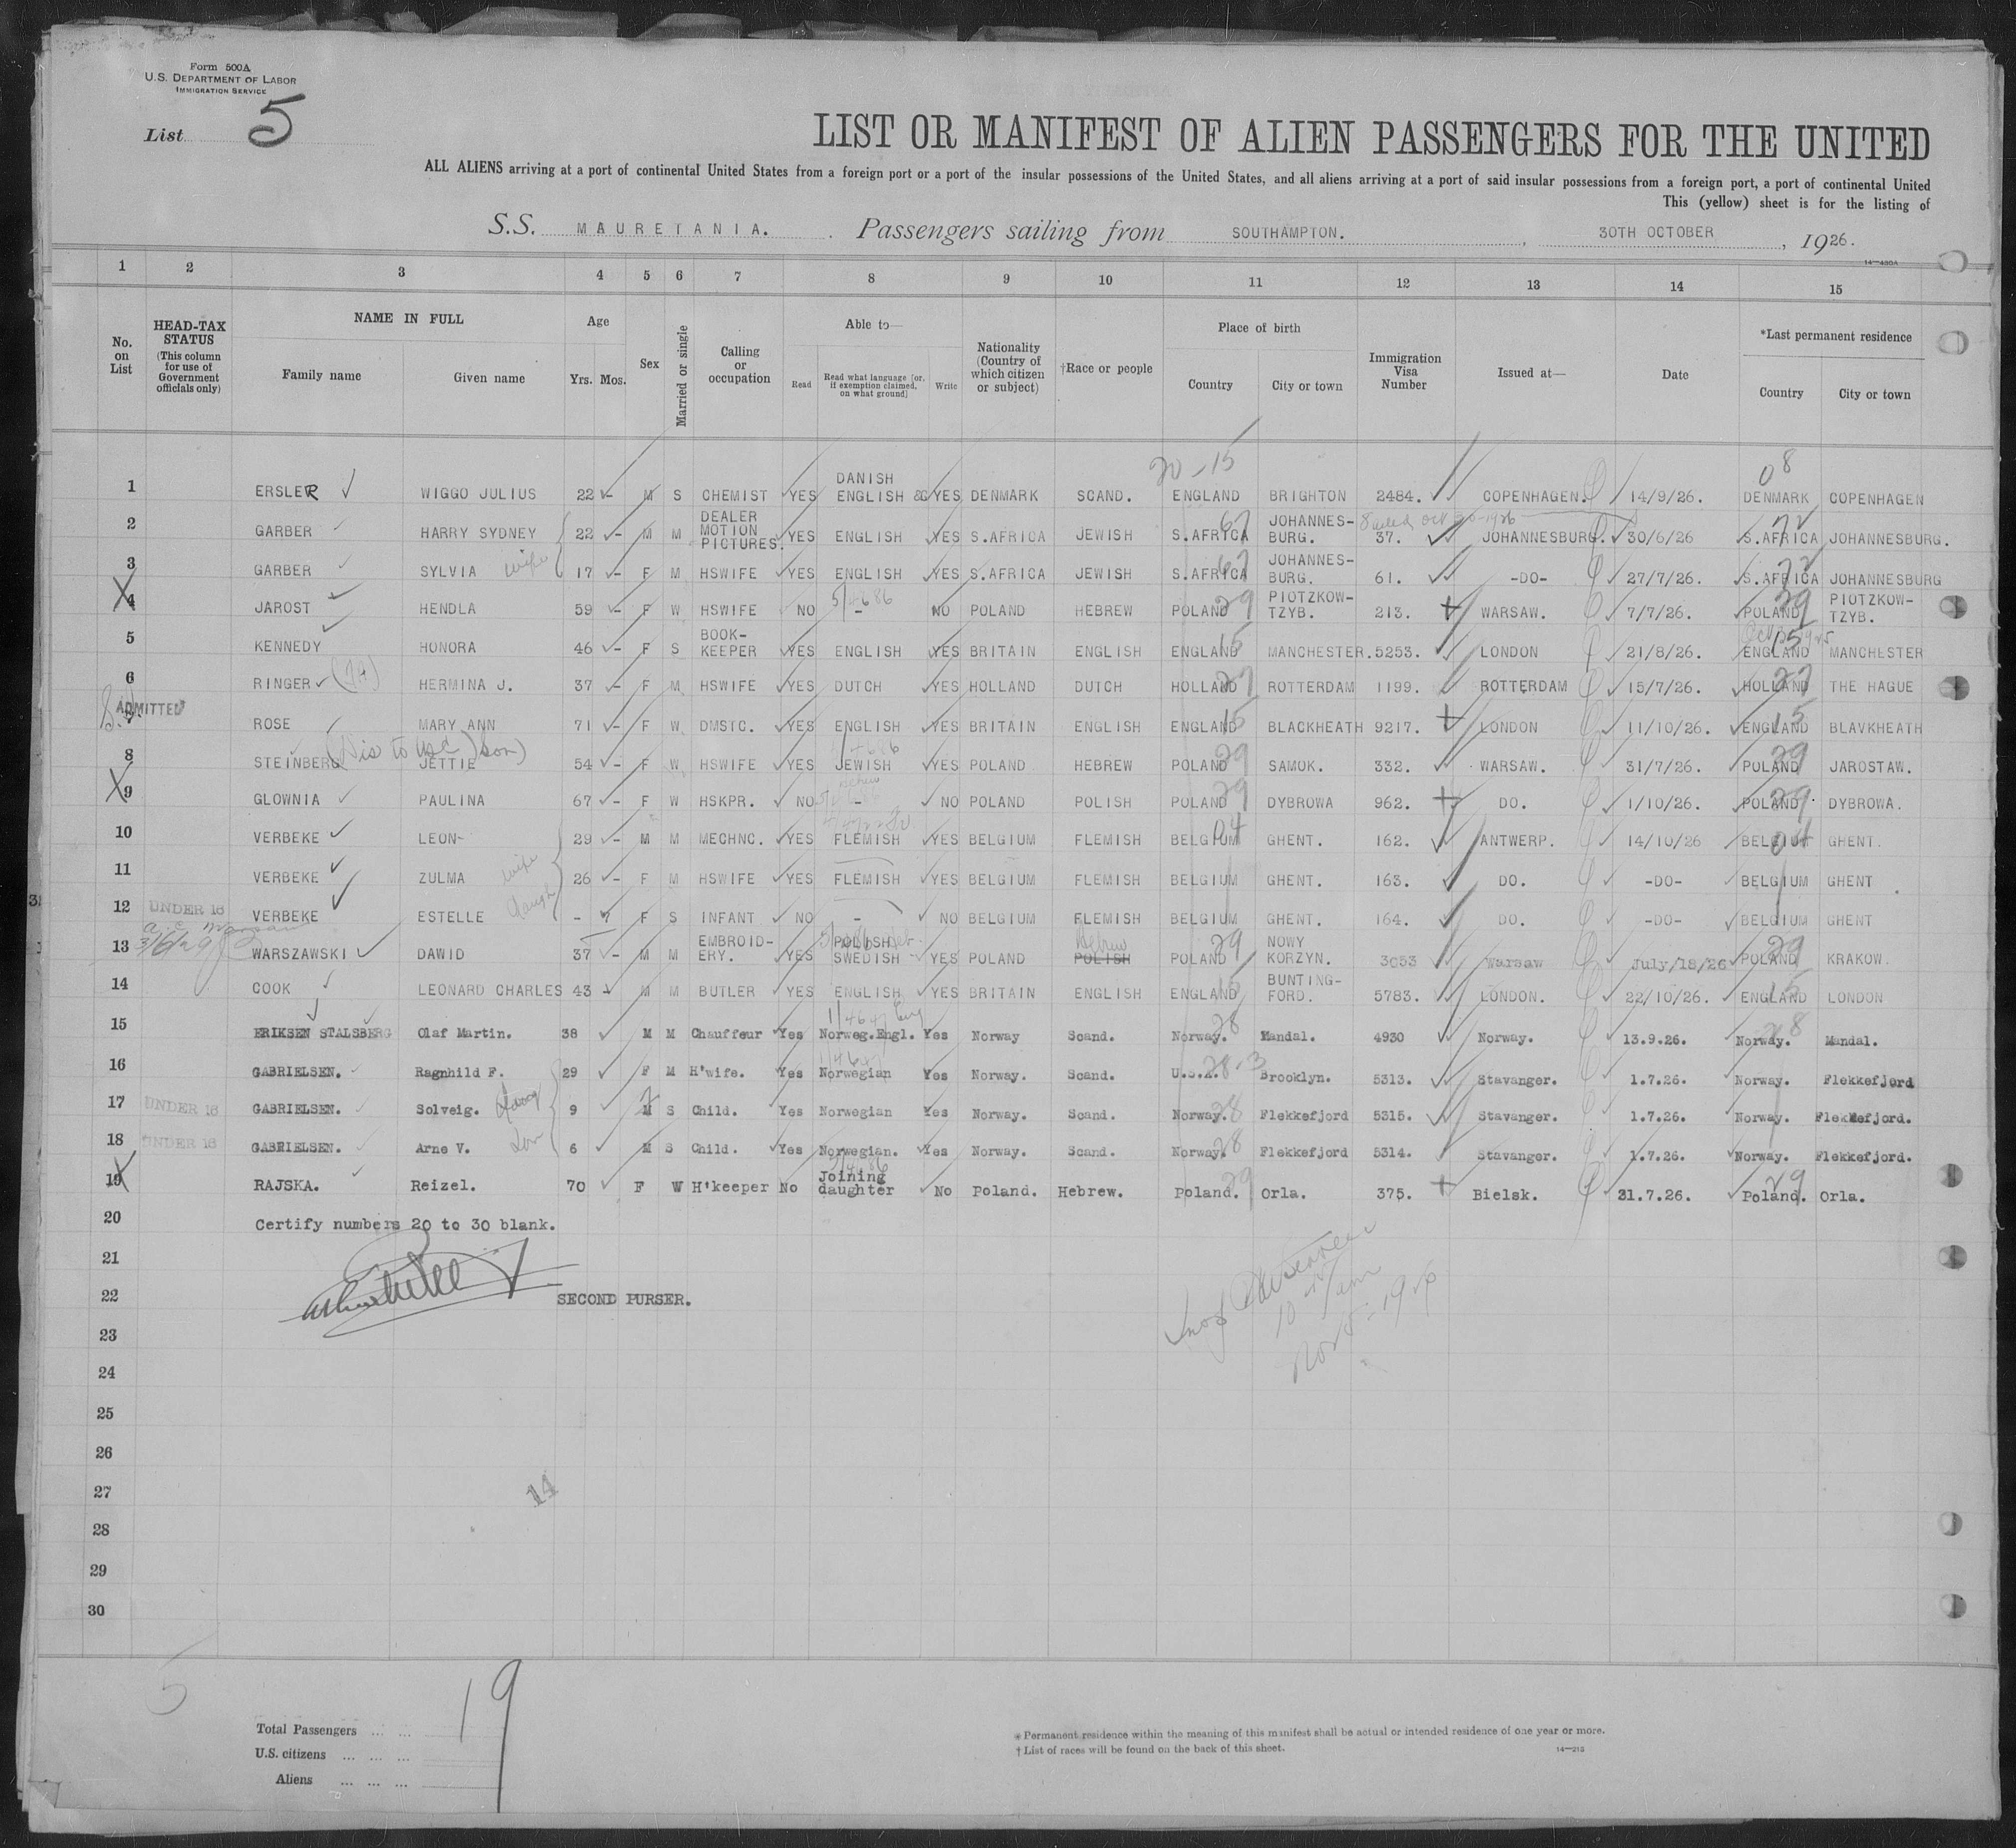 Form 500A
U.S. DEPARTMENT OF LABOR
IMMIGRATION SERVICE
List 5
LIST OR MANIFEST OF ALIEN PASSENGERS FOR THE UNITED
ALL ALIENS arriving at a port of continental United States from a foreign port or a port of the insular possessions of the United States, and all aliens arriving at a port of said insular possessions from a foreign port, a port of continental United
This (yellow) sheet is for the listing of
S.S. MAURETANIA. Passengers sailing from SOUTHAMPTON. , 30TH OCTOBER , 1926.
14—430A
1 2 3 4 5 6 7 8 9 10 11 12 13 14 15
No. on List
HEAD-TAX STATUS (This column for use of Government officials only)
NAME IN FULL
Family name Given name
Age
Yrs. Mos.
Sex
Married or single
Calling or occupation
Able to—
Read Read what language [or, if exemption claimed, on what ground] Write
Nationality (Country of which citizen or subject)
†Race or people
Place of birth
Country City or town
Immigration Visa Number
Issued at—
Date
*Last permanent residence
Country City or town
20-15 08
1 ERSLER WIGGO JULIUS 22 - M S CHEMIST YES DANISH ENGLISH &C YES DENMARK SCAND. ENGLAND BRIGHTON 2484. COPENHAGEN. 14/9/26. DENMARK COPENHAGEN
2 GARBER HARRY SYDNEY 22 - M M DEALER MOTION PICTURES. YES ENGLISH YES S.AFRICA JEWISH S.AFRICA 67 JOHANNES-BURG. 37. JOHANNESBURG. 30/6/26 S.AFRICA 72 JOHANNESBURG.
3 GARBER SYLVIA wife 17 - F M HSWIFE YES ENGLISH YES S.AFRICA JEWISH S.AFRICA 67 JOHANNES-BURG. 61. -DO- 27/7/26. S.AFRICA 72 JOHANNESBURG
4 JAROST HENDLA 59 - F W HSWIFE NO - NO POLAND HEBREW POLAND 29 PIOTZKOW-TZYB. 213. WARSAW. 7/7/26. POLAND 29 PIOTZKOW-TZYB.
5 KENNEDY HONORA 46 - F S BOOK-KEEPER YES ENGLISH YES BRITAIN ENGLISH ENGLAND 15 MANCHESTER. 5253. LONDON 21/8/26. ENGLAND 15 MANCHESTER
6 RINGER HERMINA J. 37 - F M HSWIFE YES DUTCH YES HOLLAND DUTCH HOLLAND 27 ROTTERDAM 1199. ROTTERDAM 15/7/26. HOLLAND 27 THE HAGUE
ADMITTED
7 ROSE MARY ANN 71 - F W DMSTC. YES ENGLISH YES BRITAIN ENGLISH ENGLAND 15 BLACKHEATH 9217. LONDON 11/10/26. ENGLAND 15 BLAVKHEATH
8 STEINBERG JETTIE 54 - F W HSWIFE YES JEWISH YES POLAND HEBREW POLAND 29 SAMOK. 332. WARSAW. 31/7/26. POLAND 29 JAROSTAW.
9 GLOWNIA PAULINA 67 - F W HSKPR. NO - NO POLAND POLISH POLAND 29 DYBROWA 962. DO. 1/10/26. POLAND 29 DYBROWA.
10 VERBEKE LEON- 29 - M M MECHNC. YES FLEMISH YES BELGIUM FLEMISH BELGIUM 04 GHENT. 162. ANTWERP. 14/10/26 BELGIUM 04 GHENT.
11 VERBEKE ZULMA wife 26 - F M HSWIFE YES FLEMISH YES BELGIUM FLEMISH BELGIUM GHENT. 163. DO. -DO- BELGIUM GHENT
12 UNDER 16 VERBEKE ESTELLE daugh - 7 F S INFANT NO - NO BELGIUM FLEMISH BELGIUM GHENT. 164. DO. -DO- BELGIUM GHENT
13 WARSZAWSKI DAWID 37 - M M EMBROID-ERY. YES POLISH SWEDISH - YES POLAND Hebrew POLISH POLAND 29 NOWY KORZYN. 3053 Warsaw July/18/26 POLAND 29 KRAKOW.
14 COOK LEONARD CHARLES 43 - M M BUTLER YES ENGLISH YES BRITAIN ENGLISH ENGLAND 15 BUNTING-FORD. 5783. LONDON. 22/10/26. ENGLAND 15 LONDON
15 ERIKSEN STALSBERG Olaf Martin. 38 M M Chauffeur Yes Norweg.Engl. Yes Norway Scand. Norway. 28 Mandal. 4930 Norway. 13.9.26. Norway. 28 Mandal.
16 GABRIELSEN. Ragnhild F. 29 F M H'wife. Yes Norwegian Yes Norway. Scand. U.S.A. 28-3 Brooklyn. 5313. Stavanger. 1.7.26. Norway. Flekkefjord
17 UNDER 16 GABRIELSEN. Solveig. 9 M S Child. Yes Norwegian Yes Norway. Scand. Norway. 28 Flekkefjord 5315. Stavanger. 1.7.26. Norway. Flekkefjord.
18 UNDER 16 GABRIELSEN. Arne V. Son 6 M S Child. Yes Norwegian. Yes Norway. Scand. Norway. 28 Flekkefjord 5314. Stavanger. 1.7.26. Norway. Flekkefjord.
19 RAJSKA. Reizel. 70 F W H'keeper No Joining daughter No Poland. Hebrew. Poland. 29 Orla. 375. Bielsk. 31.7.26. Poland. 29 Orla.
20 Certify numbers 20 to 30 blank.
21
22 SECOND PURSER.
23
24
25
26
27
28
29
30
14
5
19
Total Passengers ... ...
U.S. citizens ... ... ...
Aliens ... ... ...
* Permanent residence within the meaning of this manifest shall be actual or intended residence of one year or more.
† List of races will be found on the back of this sheet.
14—213